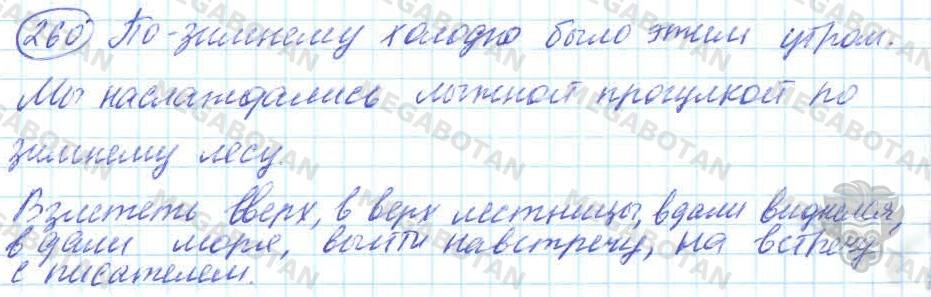 260 По-зимнему холодно было этим утром.
Мы наслаждались лыжной прогулкой по
зимнему лесу.
Взлететь вверх, в верх лестницы, вдали виднелся,
в дали моря, выйти навстречу, на встречу
с писателем.
MEGABOTAN